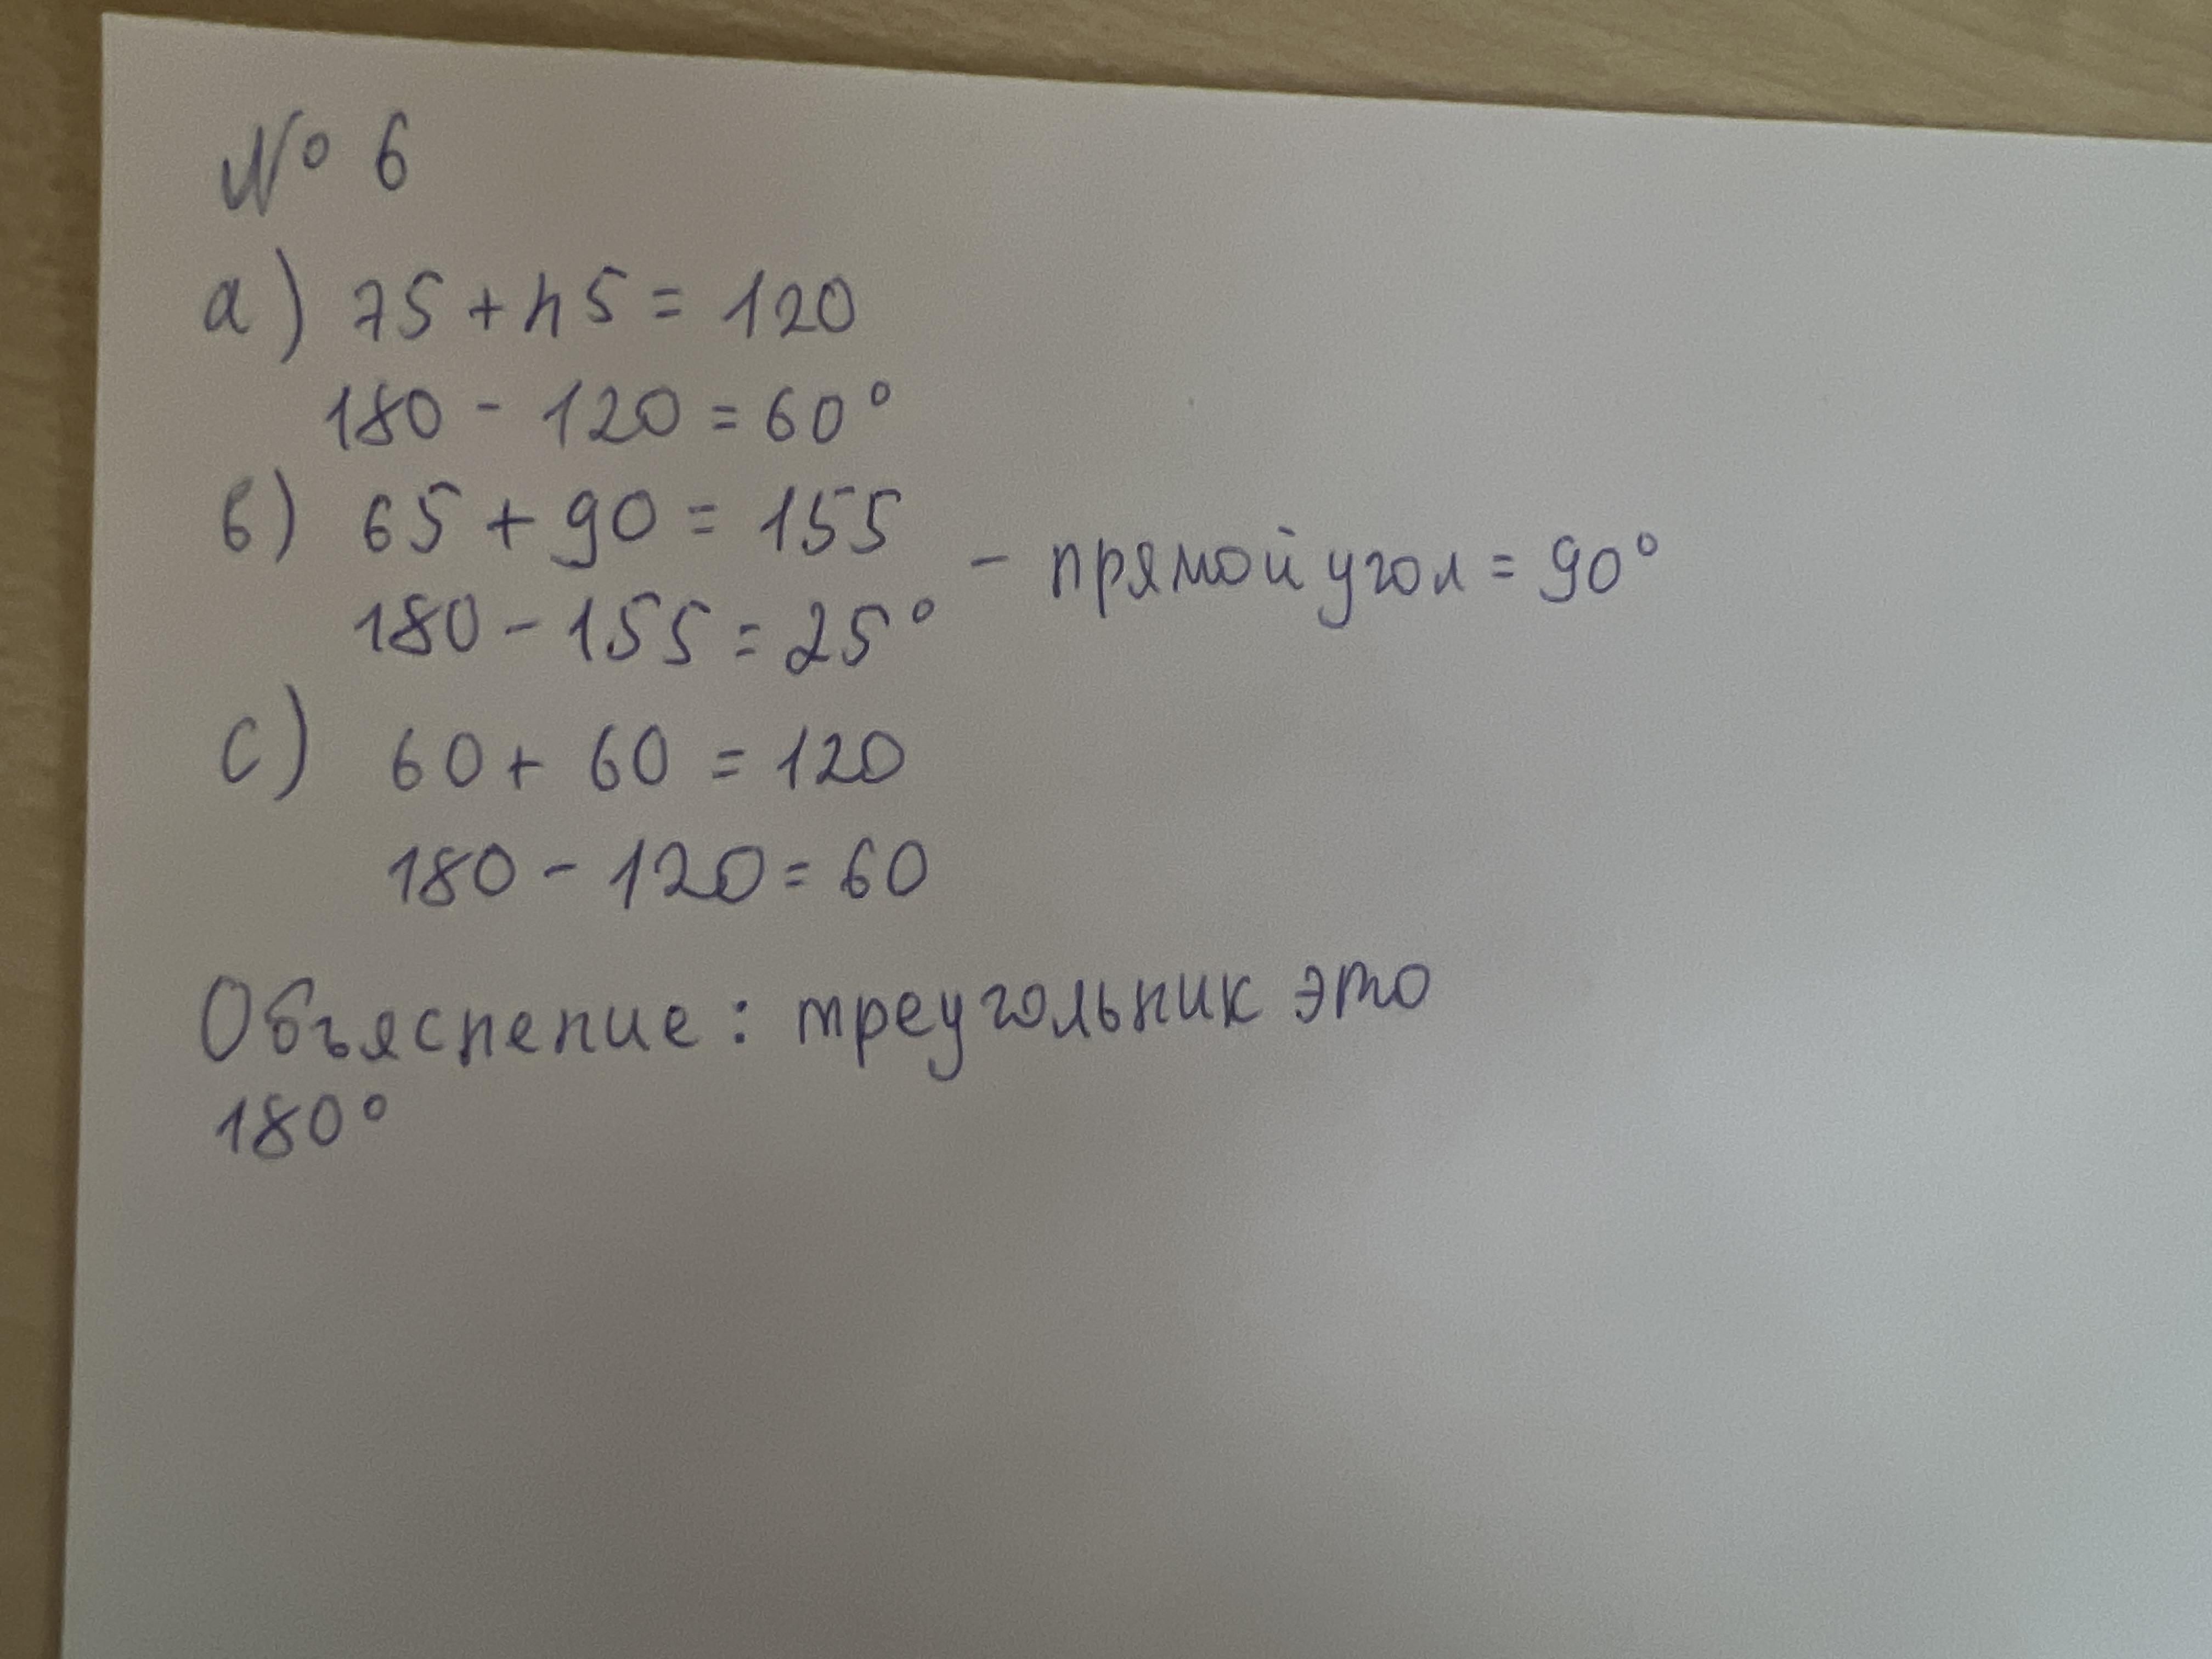 № 6
а) 75 + 45 = 120
180 - 120 = 60°
в) 65 + 90 = 155
- прямой угол = 90°
180 - 155 = 25°
с) 60 + 60 = 120
180 - 120 = 60
Объяснение: треугольник это
180°